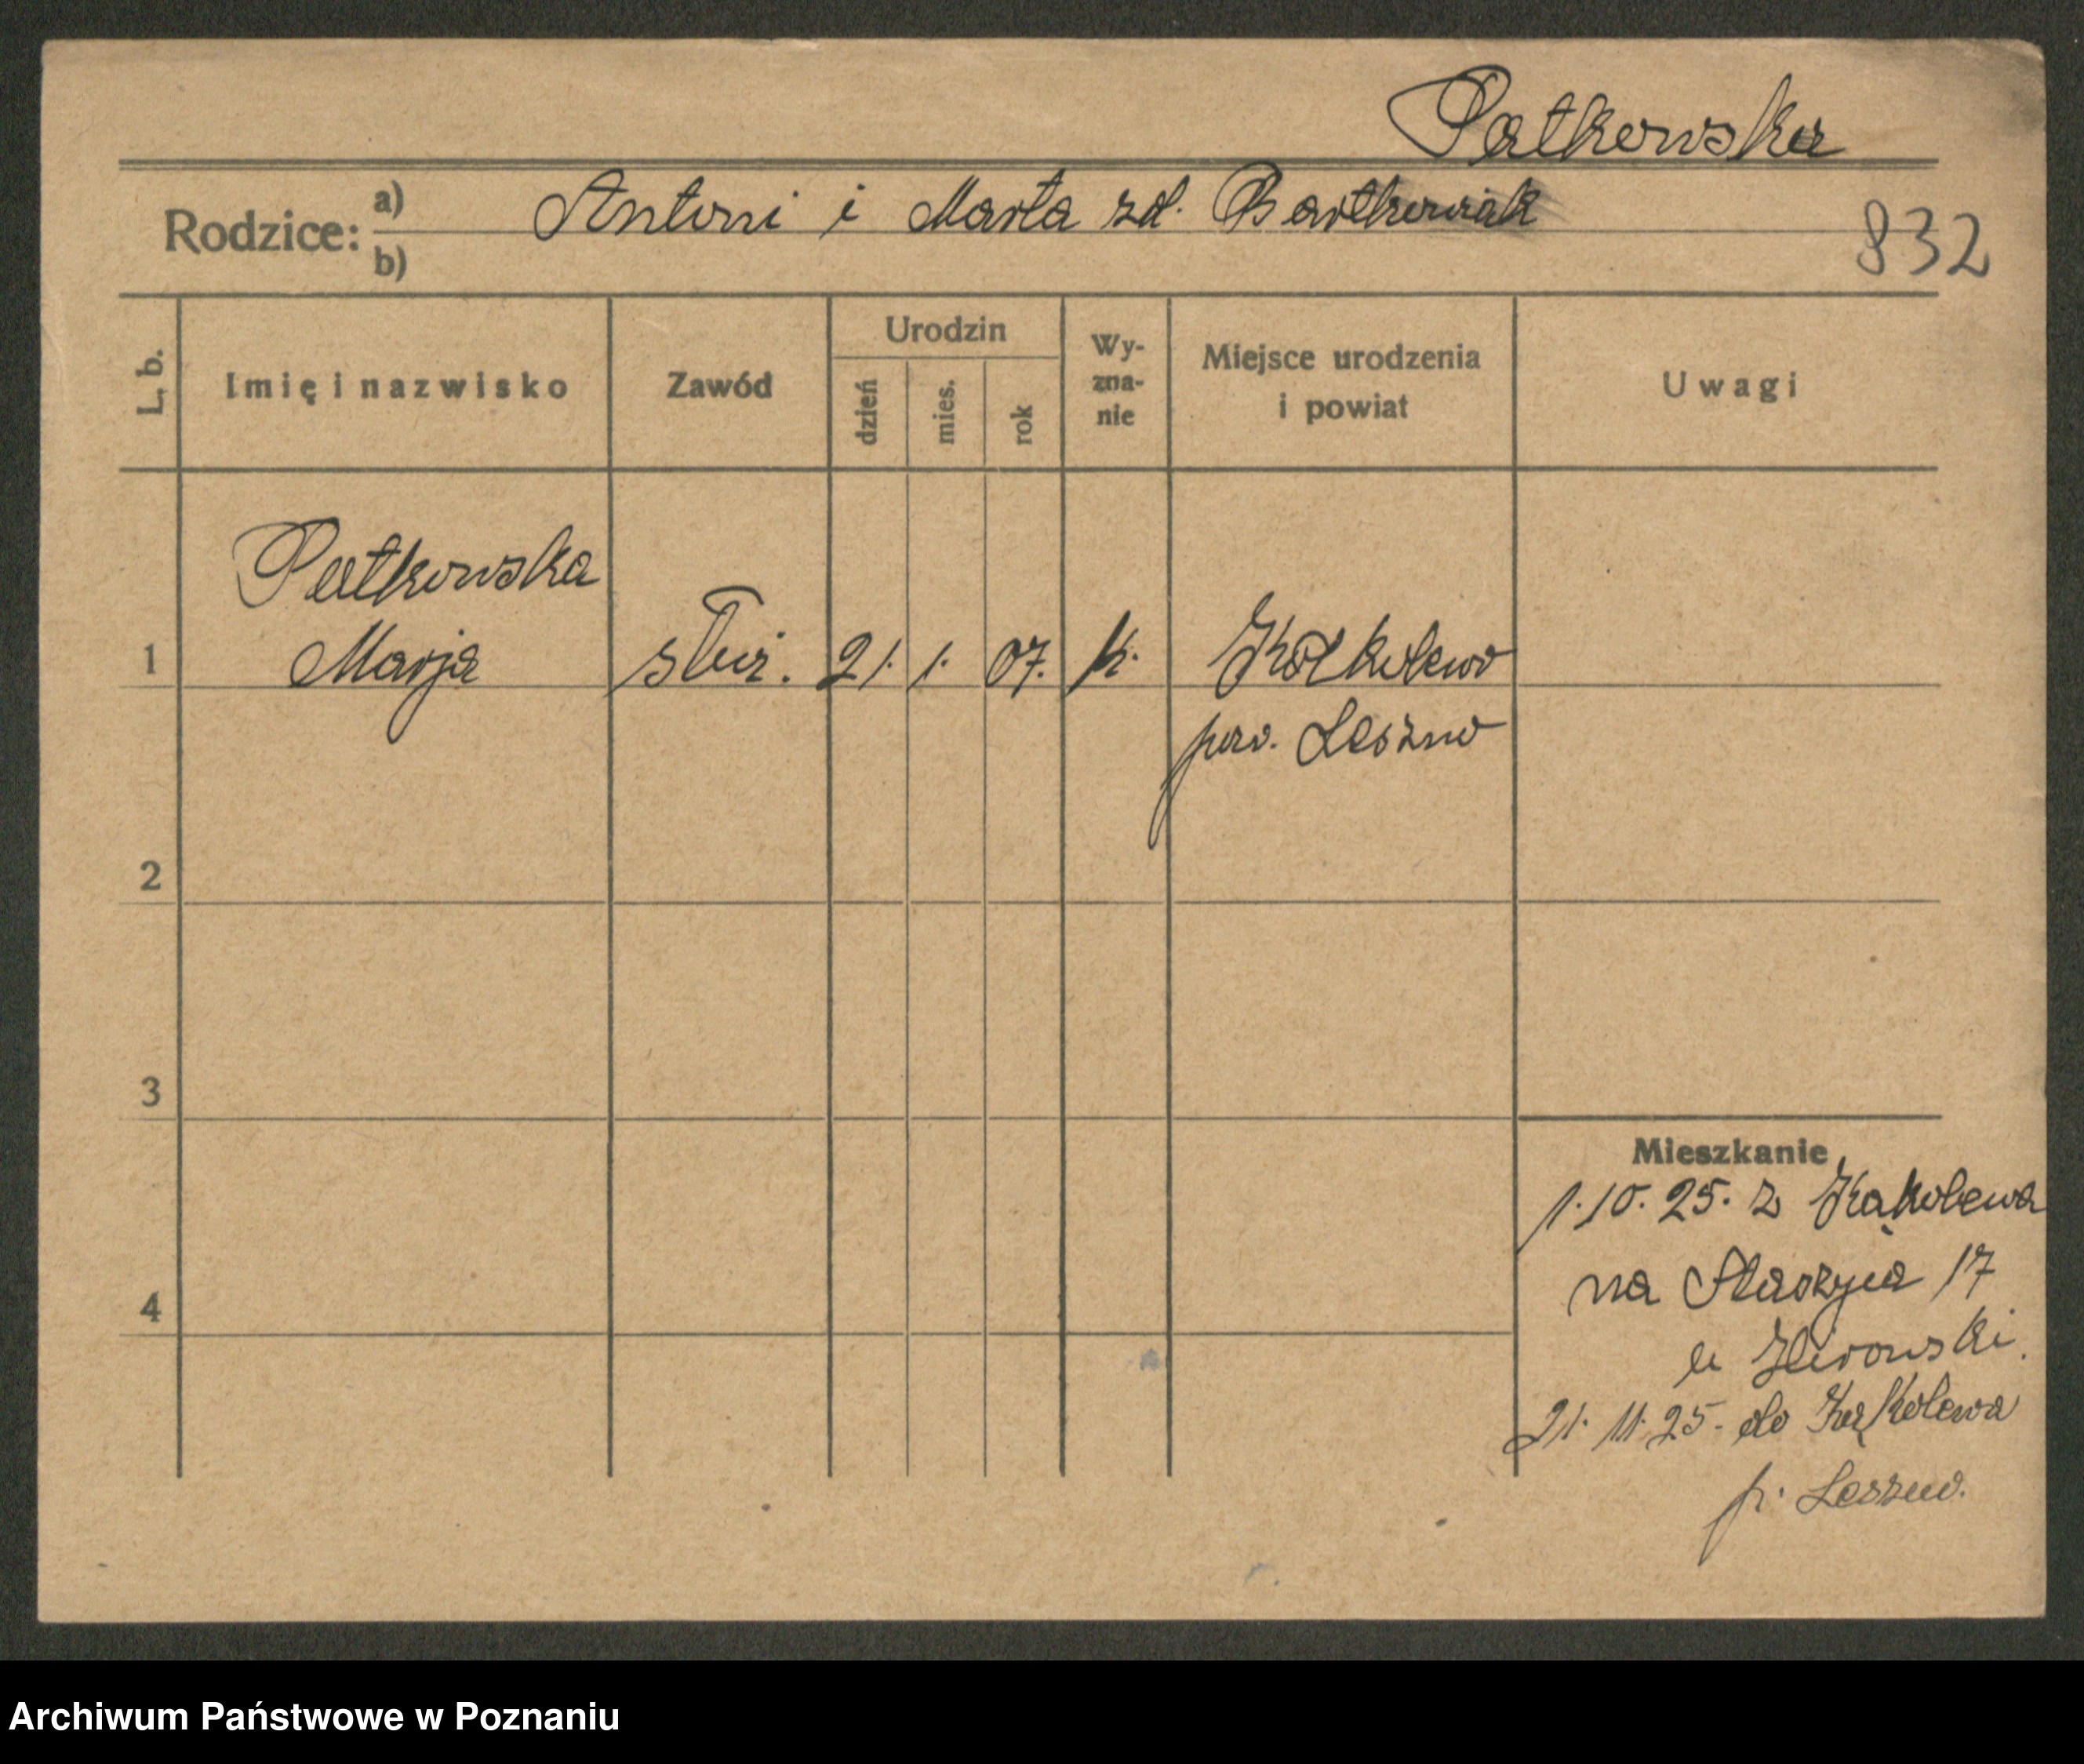 Patkowska
Rodzice: a) Antoni i Marta zd. Bartkowiak
b)
832
L. b.
Imię i nazwisko
Zawód
Urodzin
dzień
mies.
rok
Wy-
zna-
nie
Miejsce urodzenia
i powiat
Uwagi
Patkowska
1 Marja służ. 21. 1. 07. k.
pow. Leszno
2
3
4
Mieszkanie
1.10.25. z Kąkolewa
na Staszyca 17
u
21.11.25. do Kąkolewa
p. Leszno.
Archiwum Państwowe w Poznaniu